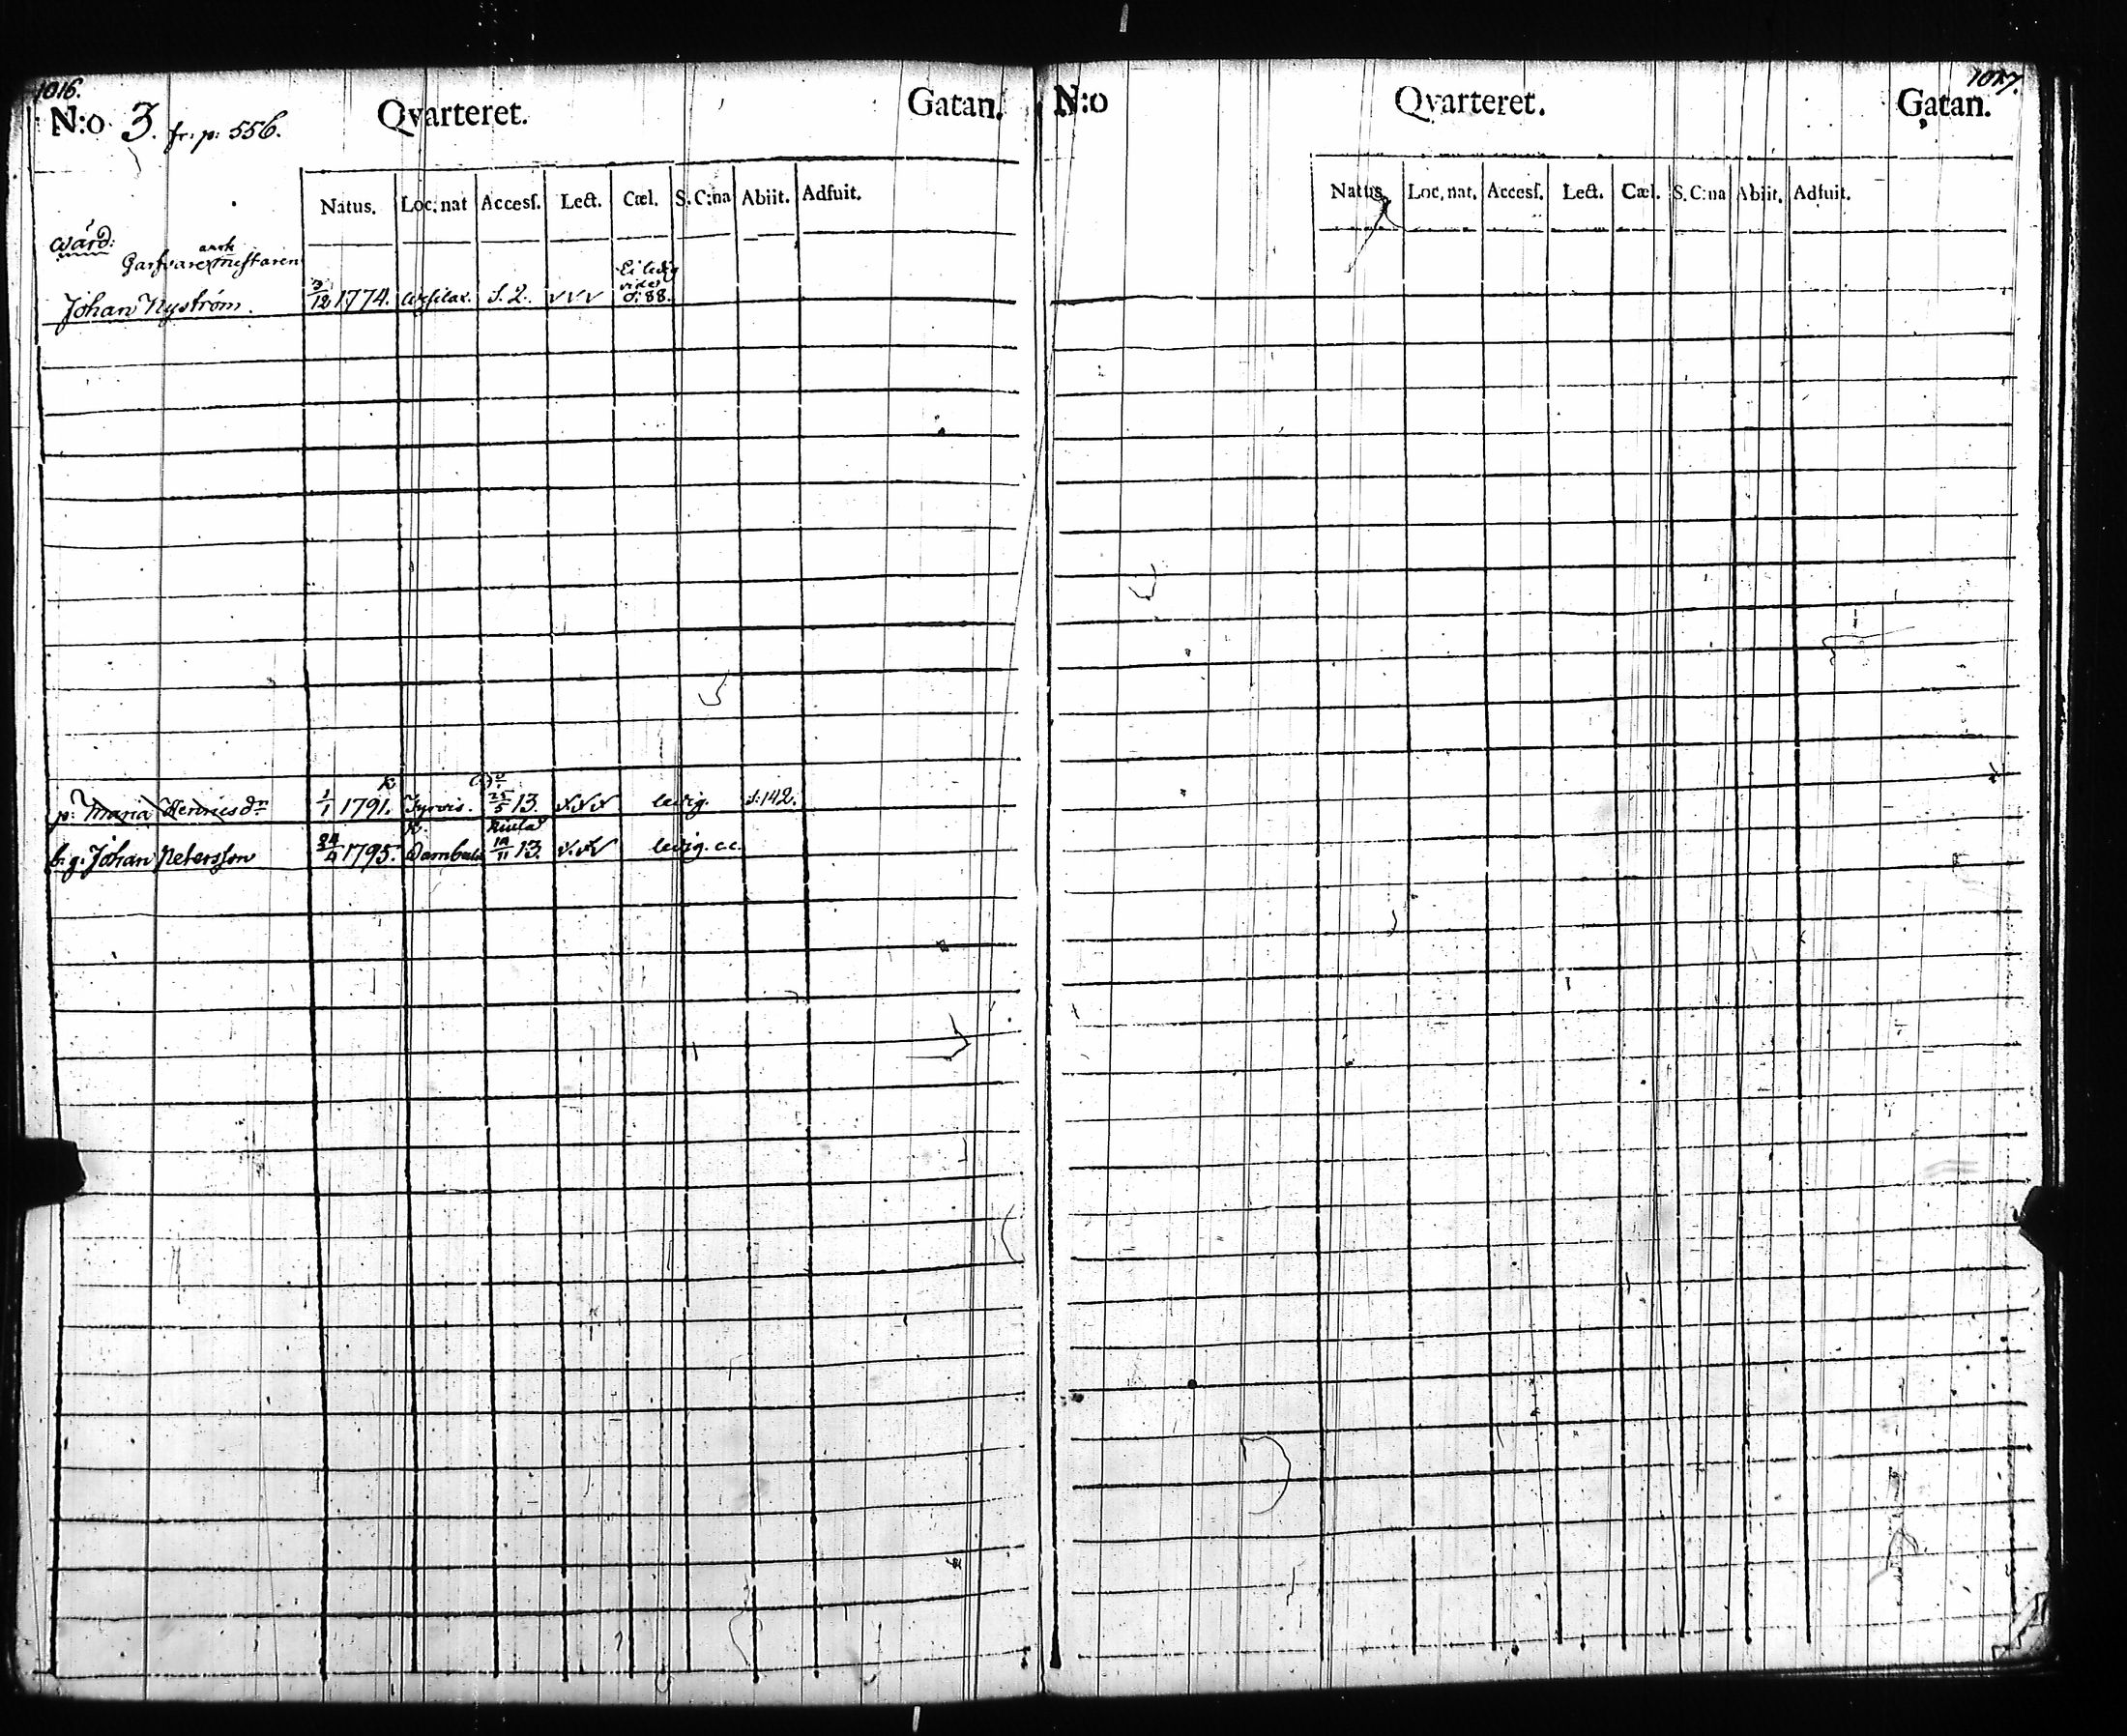 1016.
N:o 3. fr. p: 556. Qvarteret. Gatan.
Natus. Loc. nat Accesſ. Lect. Cæl. S. C:na Abiit. Adfuit.
Wärd:
Garfvare
Johan Nyström. 3/12 1774. s. 2. v v v Ei ledig vide s: 88.
p: Maria Henricsdr 1/1 1791. Tyrvis. 25/5 13. ledig. s: 142.
Johan Petersson 24/4 1795. 13. ledig. cc.
1017.
N:o Qvarteret. Gatan.
Natus. Loc. nat. Accesſ. Lect. Cæl. S. C:na Abiit. Adfuit.